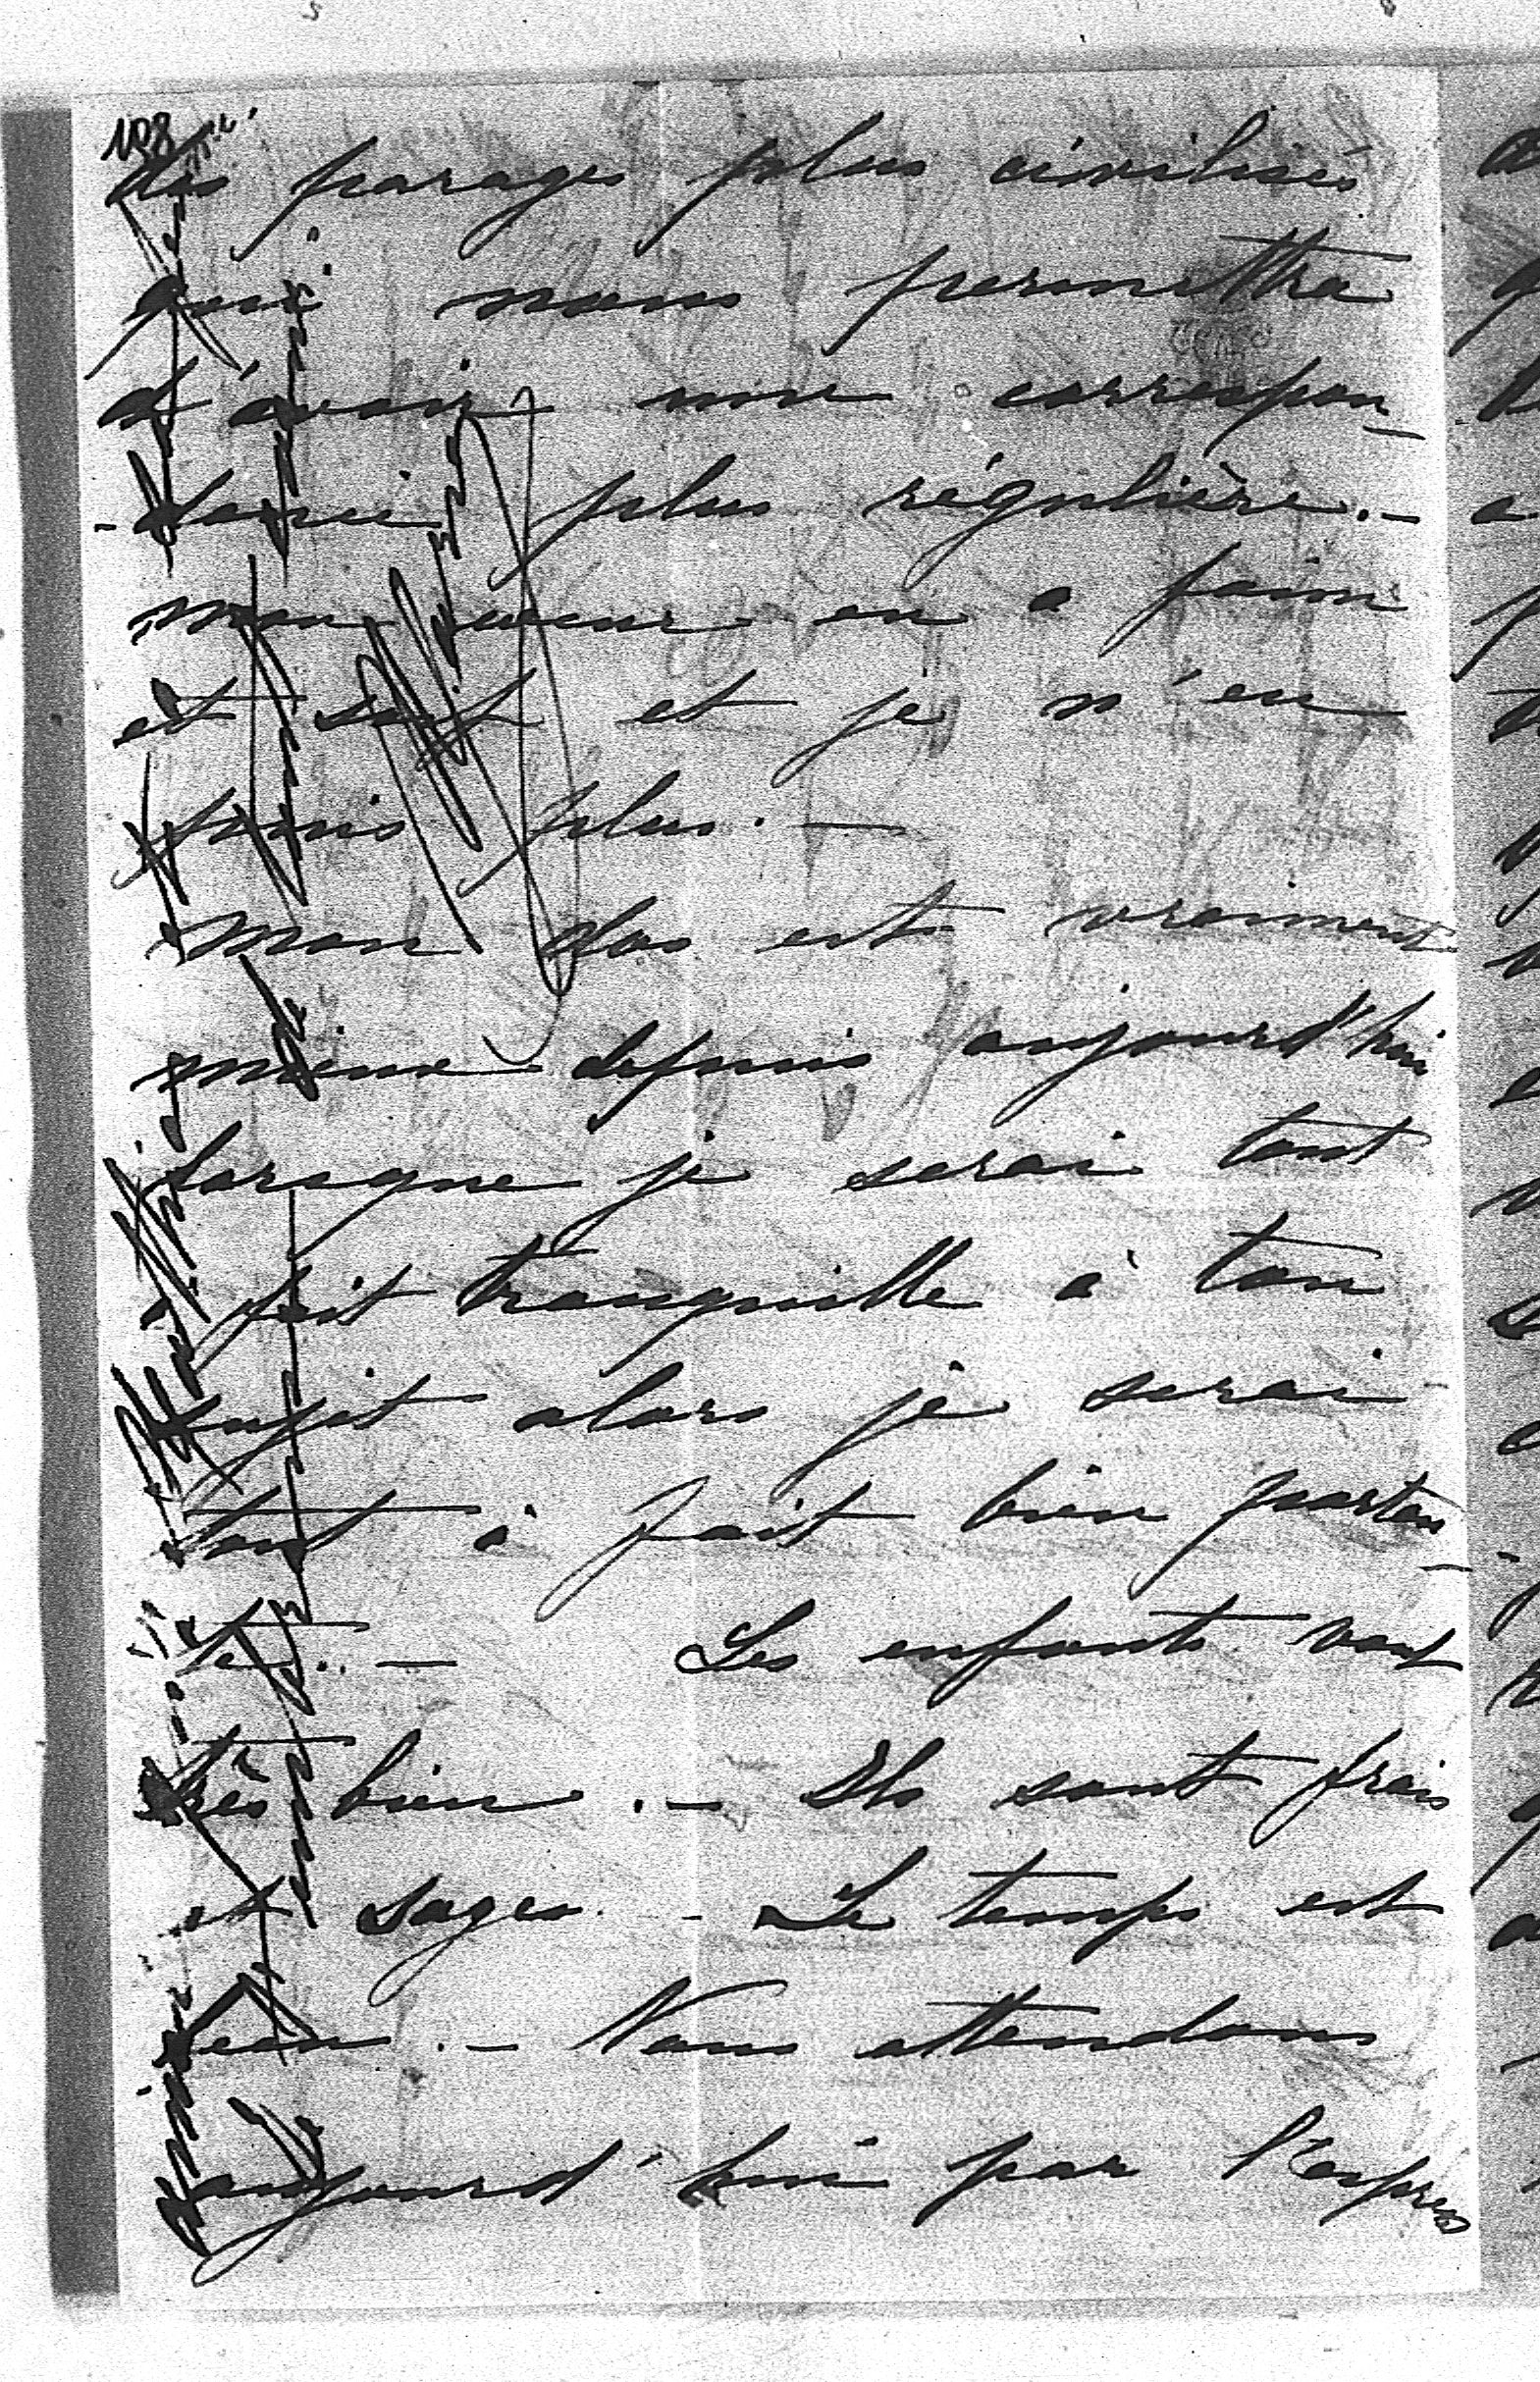 108
des parages plus civilisés
qui nous permettra
d'avoir une correspon-
-dance plus régulière.-
mon coeur en a faim
et soif et je n'en
puis plus.-
Mon dos est vraiment
mieux depuis aujourd'hui
lorsque je serai tout
à fait tranquille à ton
sujet alors je serai
tout à fait bien portan-
te..- Les enfants vont
très bien.- Ils sont frais
et sages.- Le temps est
beau.- Nous attendons
aujourd'hui par l'express